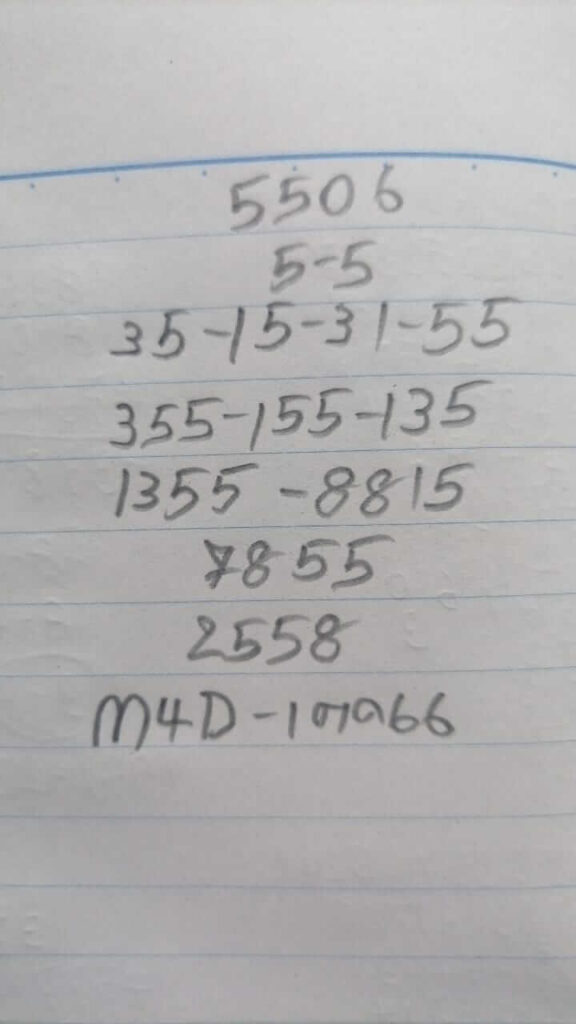 5506
5-5
35-15-31-55
355-155-135
1355-8815
7855
2558
M4D-เลข66